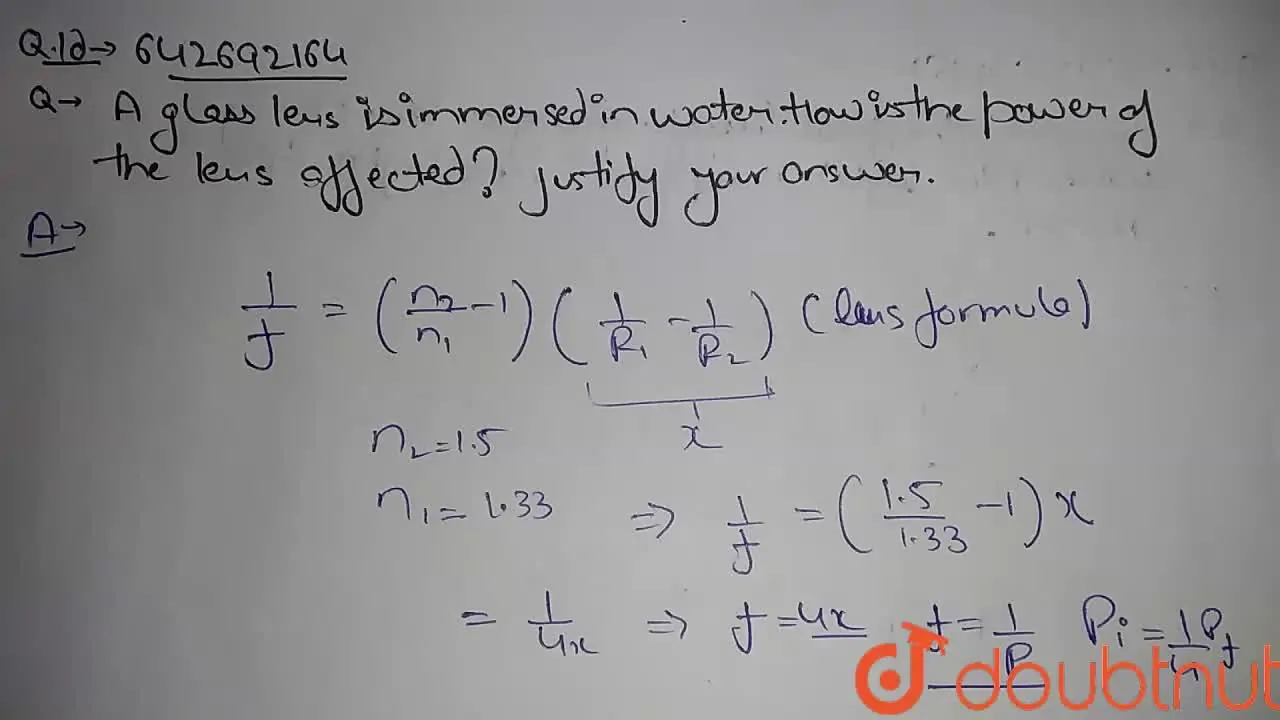 Q.Id→ 642692164
Q→ A glass lens is immersed in water. How is the power of
the lens affected? Justify your answer.
A→
1/f = (n₂/n₁ - 1) (1/R₁ - 1/R₂) (lens formula)
x
n₂ = 1.5
n₁ = 1.33 ⇒ 1/f = (1.5/1.33 - 1) x
= 1/4x ⇒ f = 4x f = 1/P Pi = 1/4 Pf
doubtnut